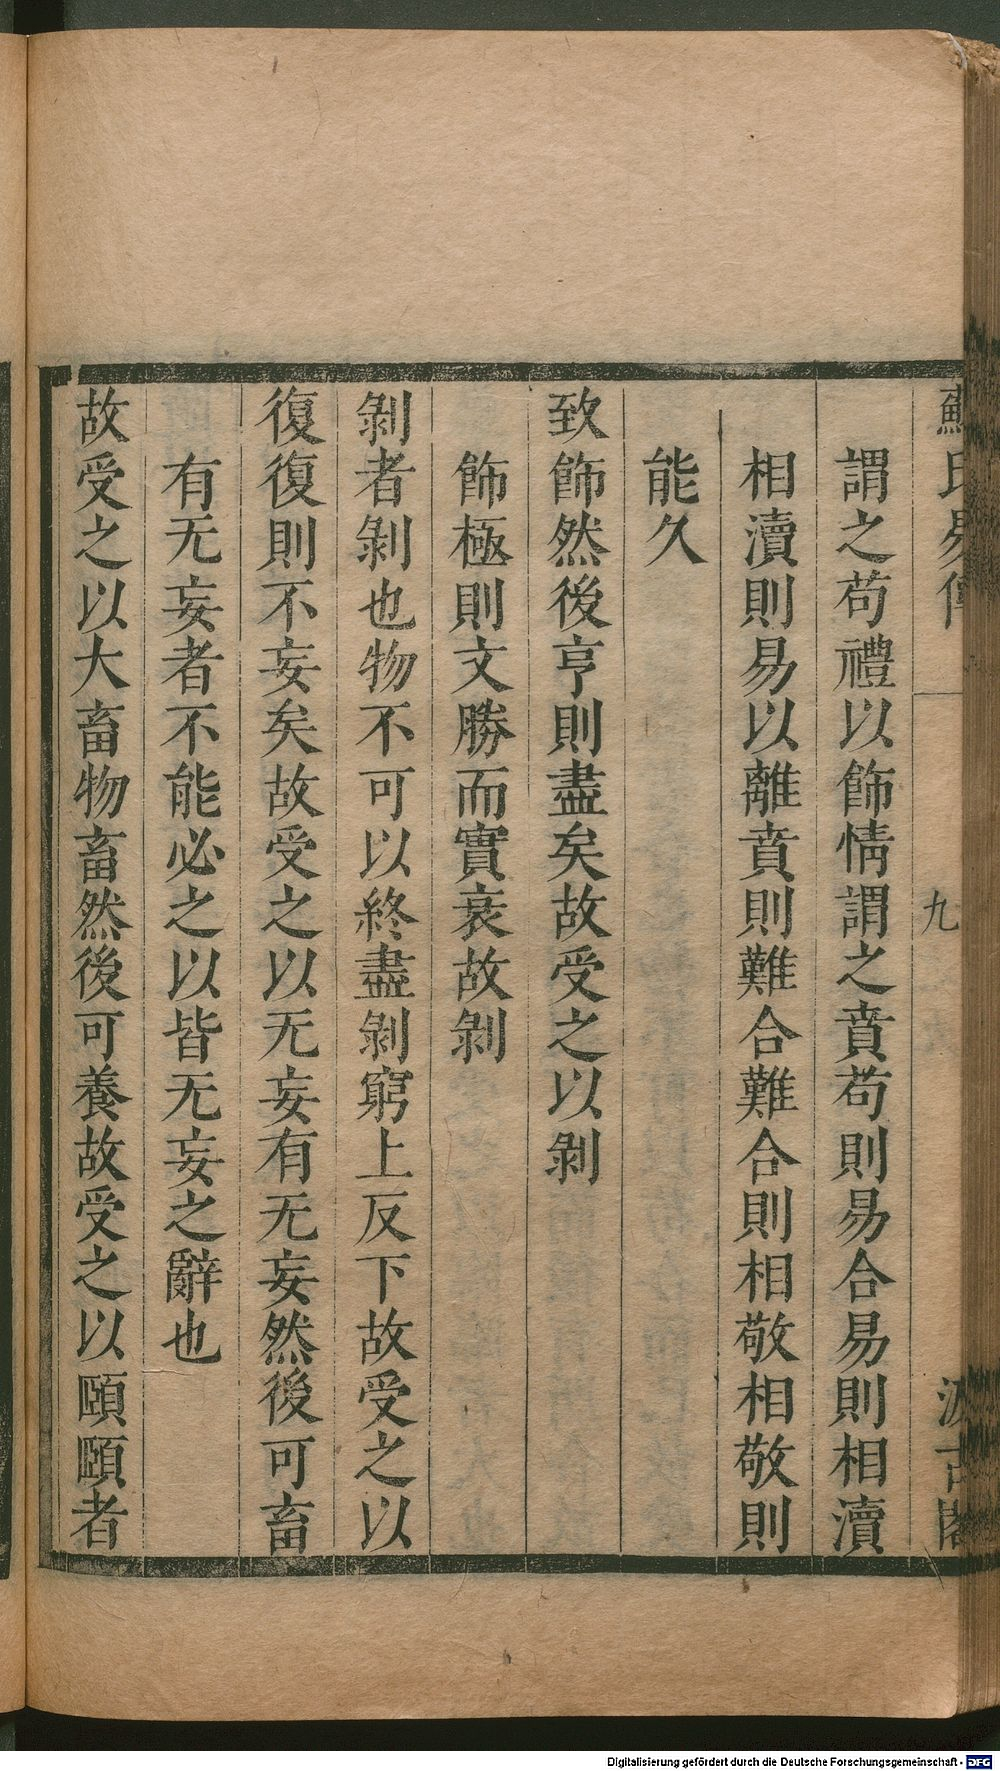 蘇氏易傳
九
汲古閣
謂之苟禮以飾情謂之賁苟則易合易則相瀆
相瀆則易以離賁則難合難合則相敬相敬則
能久
致飾然後亨則盡矣故受之以剝
飾極則文勝而實衰故剝
剝者剝也物不可以終盡剝窮上反下故受之以
復復則不妄矣故受之以无妄有无妄然後可畜
有无妄者不能必之以皆无妄之辭也
故受之以大畜物畜然後可養故受之以頤頤者
Digitalisierung gefördert durch die Deutsche Forschungsgemeinschaft - DFG